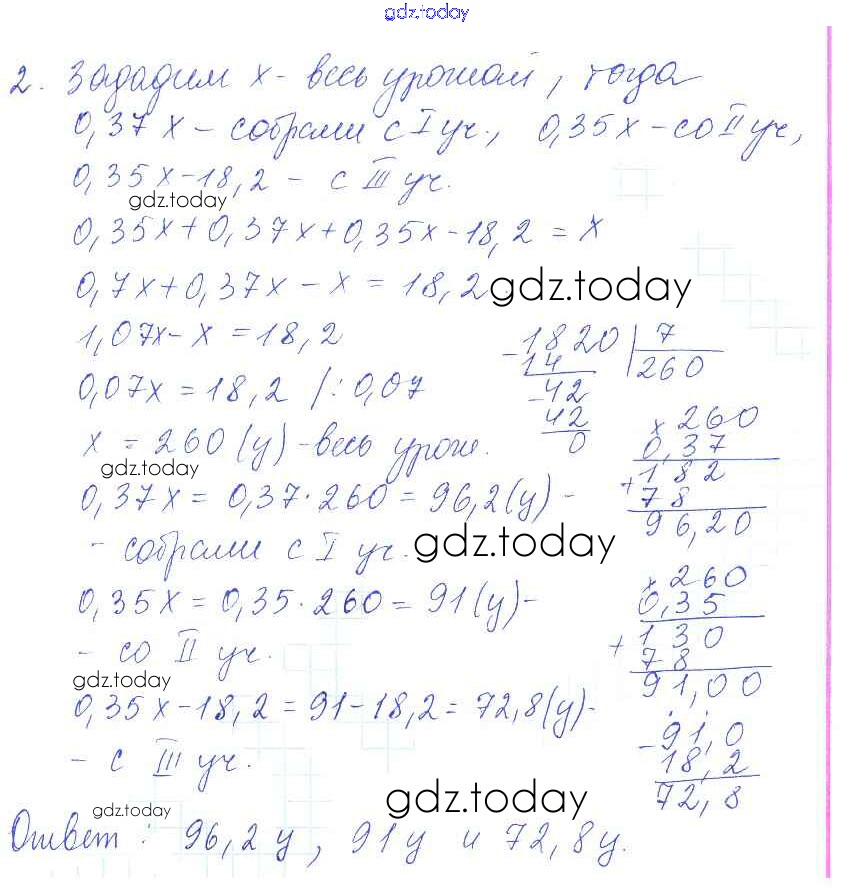 gdz.today
2. Зададим х - весь урожай, тогда
0,37х - собрали с I уч., 0,35х - со II уч,
0,35х-18,2 - с III уч.
gdz.today
0,35х+0,37х+0,35х-18,2 = х
0,7х+0,37х - х = 18,2 gdz.today
1,07х- х =18,2
0,07х = 18,2 /: 0,07
х = 260 (ц) - весь урож.
gdz.today
0,37х = 0,37·260 = 96,2(ц) -
- собрали с I уч. gdz.today
0,35х = 0,35·260 = 91(ц)-
- со II уч.
gdz.today
0,35х-18,2 = 91-18,2 = 72,8(ц)-
- с III уч.
gdz.today gdz.today
Ответ: 96,2ц, 91ц и 72,8ц.
-1820 | 7
14 260
-42
42
0
×260
0,37
+182
78
96,20
×260
0,35
+130
78
91,00
-91,0
18,2
72,8